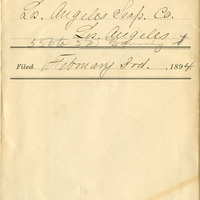 Los. Angeles Soap. Co.
Los. Angeles
Filed February 3rd. , 1894